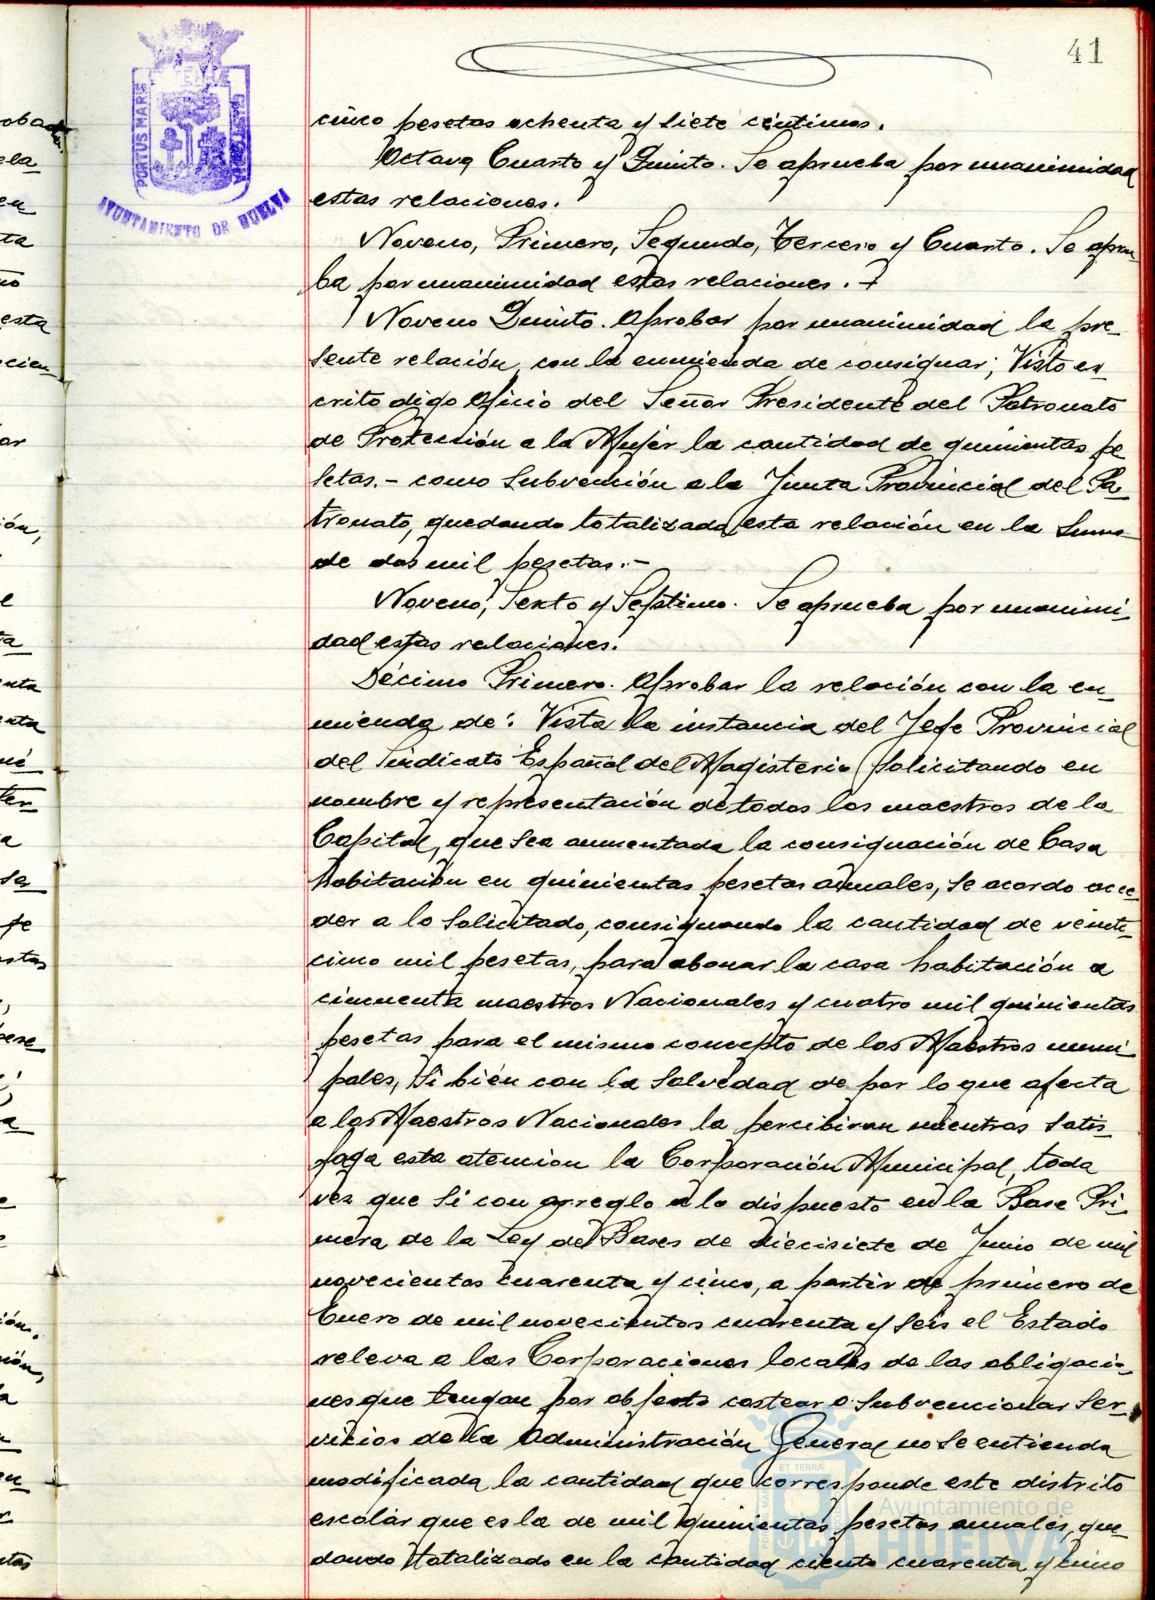 41
PORTUS MARIS
ET TERRÆ
AYUNTAMIENTO DE HUELVA
cinco pesetas ochenta y siete céntimos.
Octavo, Cuarto y Quinto. Se aprueba por unanimidad
estas relaciones.
Noveno, Primero, Segundo, Tercero y Cuarto. Se aprue-
ba por unanimidad estas relaciones.
Noveno Quinto. Aprobar por unanimidad la pre-
sente relación, con la enmienda de consignar; Visto es-
crito digo Oficio del Señor Presidente del Patronato
de Protección a la Mujer la cantidad de quinientas pe
setas.- como Subvención a la Junta Provincial del Pa-
tronato, quedando totalizada esta relación en la Suma
de dos mil pesetas.-
Noveno, Sexto y Septimo. Se aprueba por unanimi-
dad estas relaciones.
Décimo Primero. Aprobar la relación con la en-
mienda de: Vista la instancia del Jefe Provincial
del Sindicato Español del Magisterio, solicitando en
nombre y representación de todos los maestros de la
Capital, que sea aumentada la consignación de Casa
habitación en quinientas pesetas anuales, se acordo acce-
der a lo Solicitado, consignando la cantidad de veinti-
cinco mil pesetas, para abonar la casa habitación a
cincuenta maestros Nacionales y cuatro mil quinientas
pesetas para el mismo concepto de los Maestros muni-
pales, Si bién con la Salvedad de por lo que afecta
a los Maestros Nacionales la percibiran mientras Satis-
faga esta atencion la Corporación Municipal, toda
vez que Si con arreglo a lo dispuesto en la Base Pri-
mera de la Ley de Bases de diecisiete de Junio de mil
novecientos cuarenta y cinco, a partir de primero de
Enero de mil novecientos cuarenta y Seis el Estado
releva a las Corporaciones locales de las obligacio-
nes que tengan por objeto costear o Subvencionar Ser-
vicios de la Administración General no se entienda
modificada la cantidad que corresponde este distrito
escolar que es la de mil quinientas pesetas anuales, que-
dando totalizado en la cantidad ciento cuarenta y cinco
ET TERRÆ
Ayuntamiento de
HUELVA